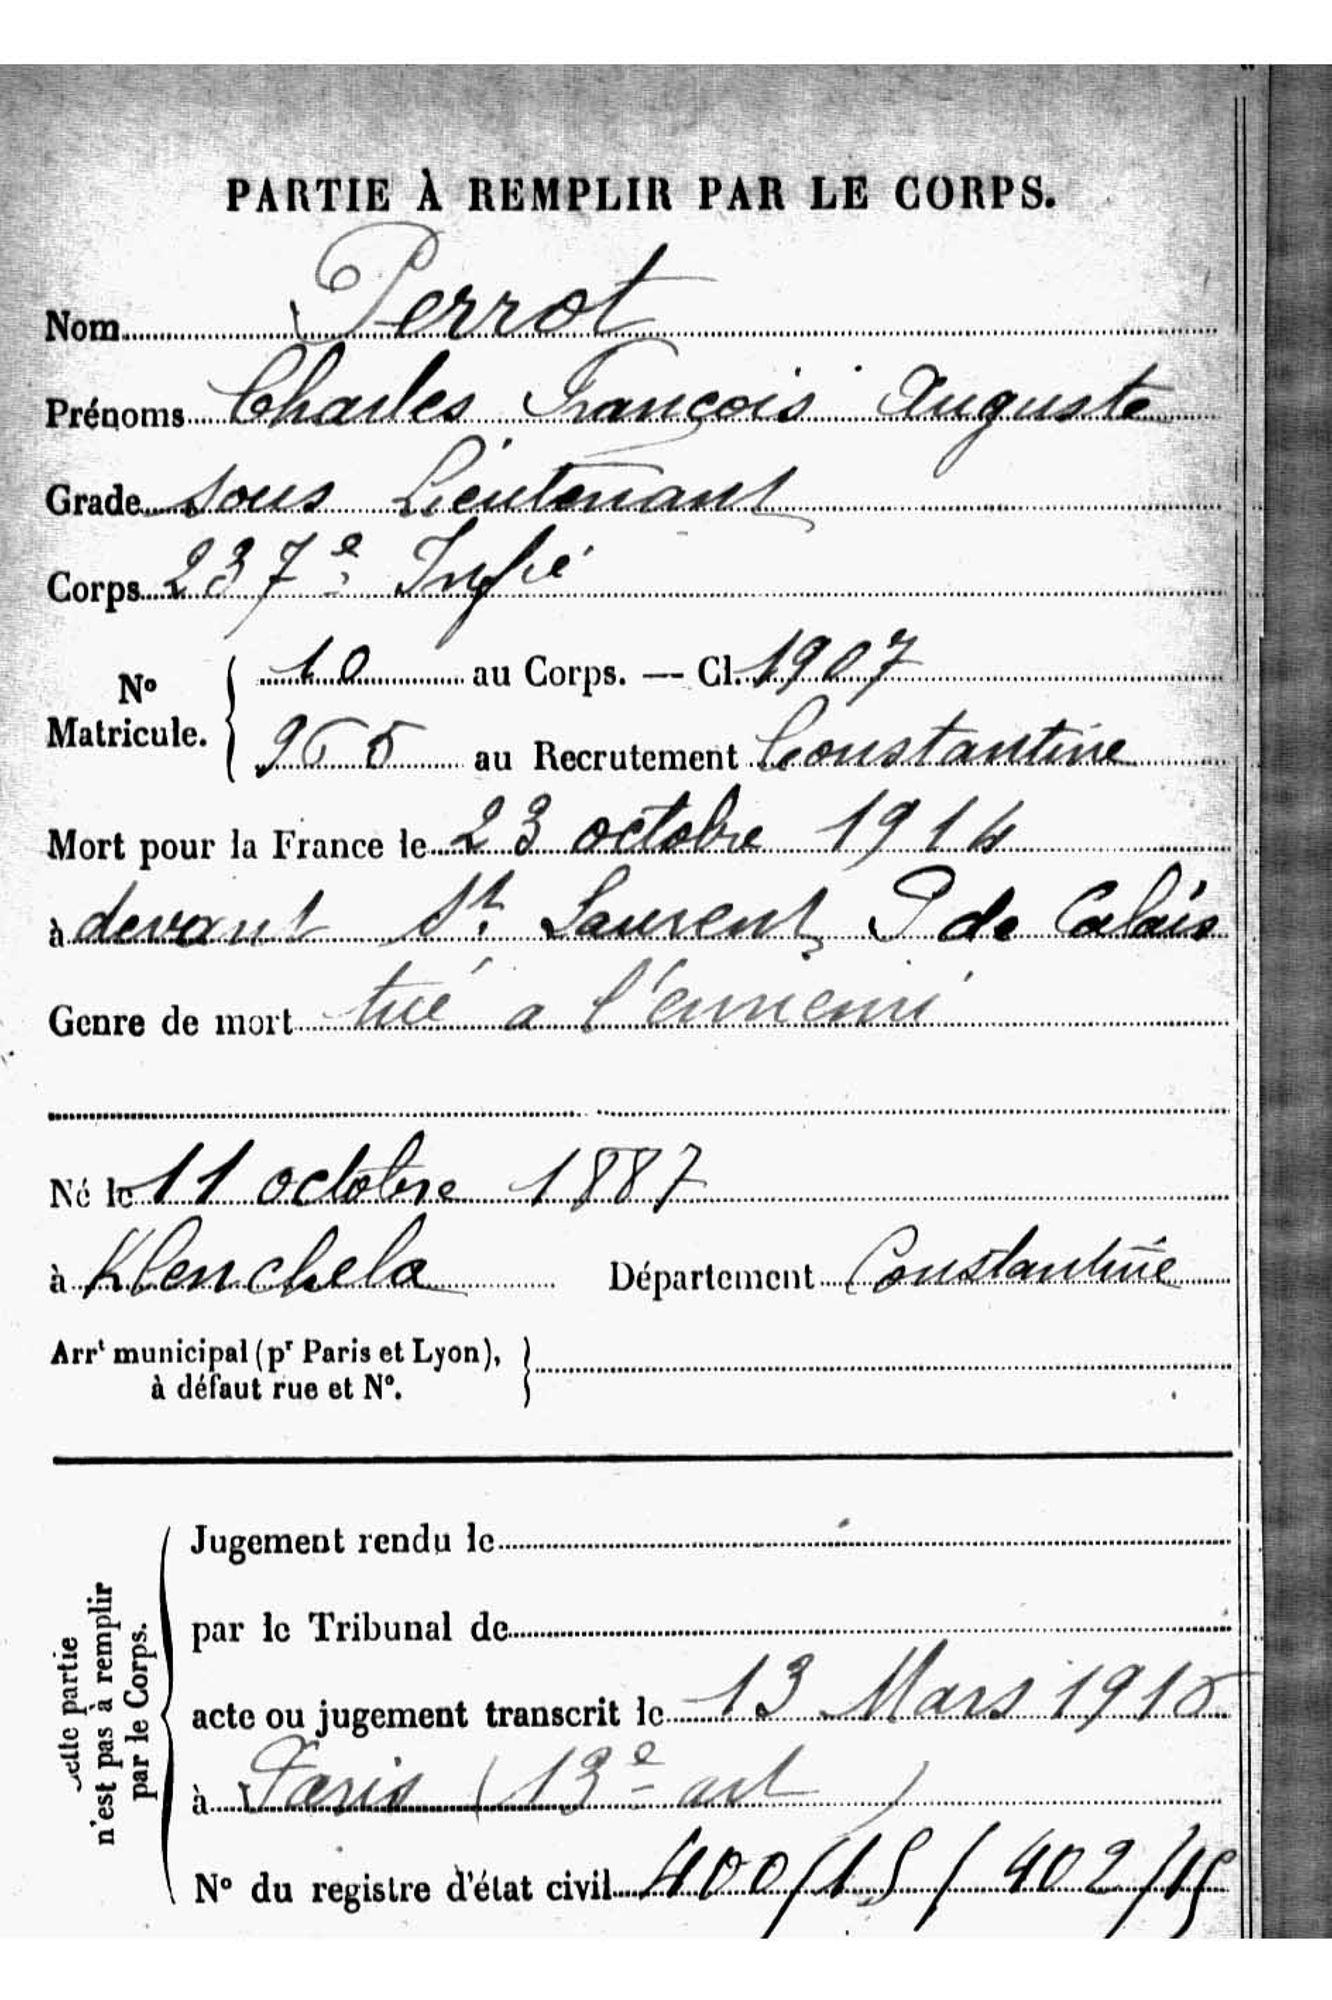 PARTIE À REMPLIR PAR LE CORPS.
Nom Perrot
Prénoms Charles François Auguste
Grade sous Lieutenant
Corps 237e Infie
No Matricule. { 10 au Corps. — Cl. 1907
965 au Recrutement Constantine
Mort pour la France le 23 octobre 1914
à devant St Laurent P de Calais
Genre de mort tué a l'ennemi
Né le 11 octobre 1887
à Khenchela Département Constantine
Arrt municipal (pr Paris et Lyon), }
à défaut rue et No.
Cette partie
n'est pas à remplir
par le Corps.
Jugement rendu le
par le Tribunal de
acte ou jugement transcrit le 13 Mars 1915
à Paris (13e art )
No du registre d'état civil 400/15/402/15